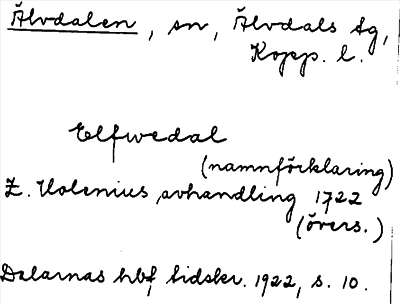 Älvdalen, sn, Älvdals tg,
Kopp. l.
Elfwedal
(namnförklaring)
Z. Holenius avhandling 1722
(övers.)
Dalarnas hbf tidskr. 1922, s. 10.